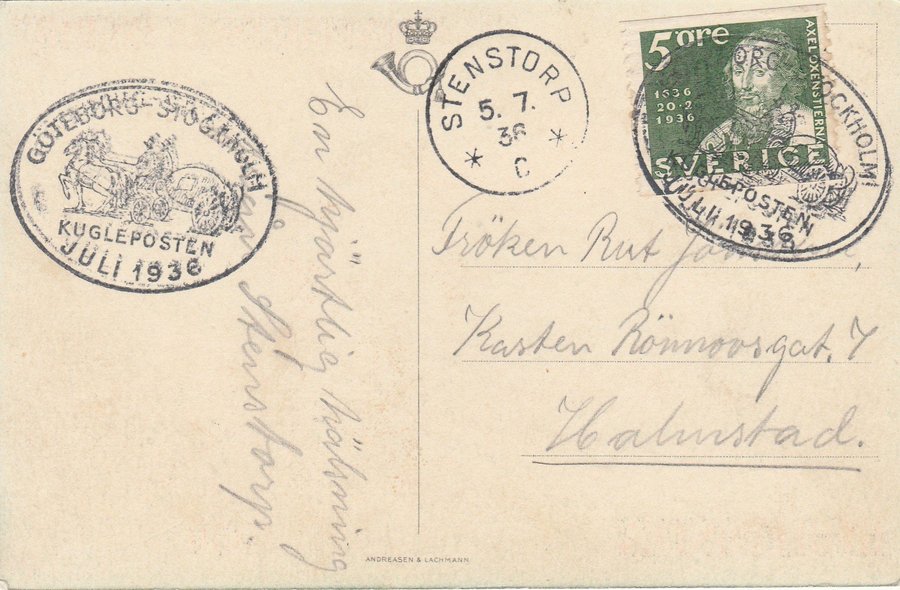 GÖTEBORG-STOCKHOLM
KUGLEPOSTEN
JULI 1936
En hjärtlig hälsning
Stenstorp.
STENSTORP
5. 7.
36
* C *
5 öre
AXEL OXENSTIERNA
1636
20·2
1936
SVERIGE
STOCKHOLM
KUGLEPOSTEN
JULI 1936
Fröken Rut
Karsten Rönnovsgat. 7
Halmstad.
ANDREASEN & LACHMANN